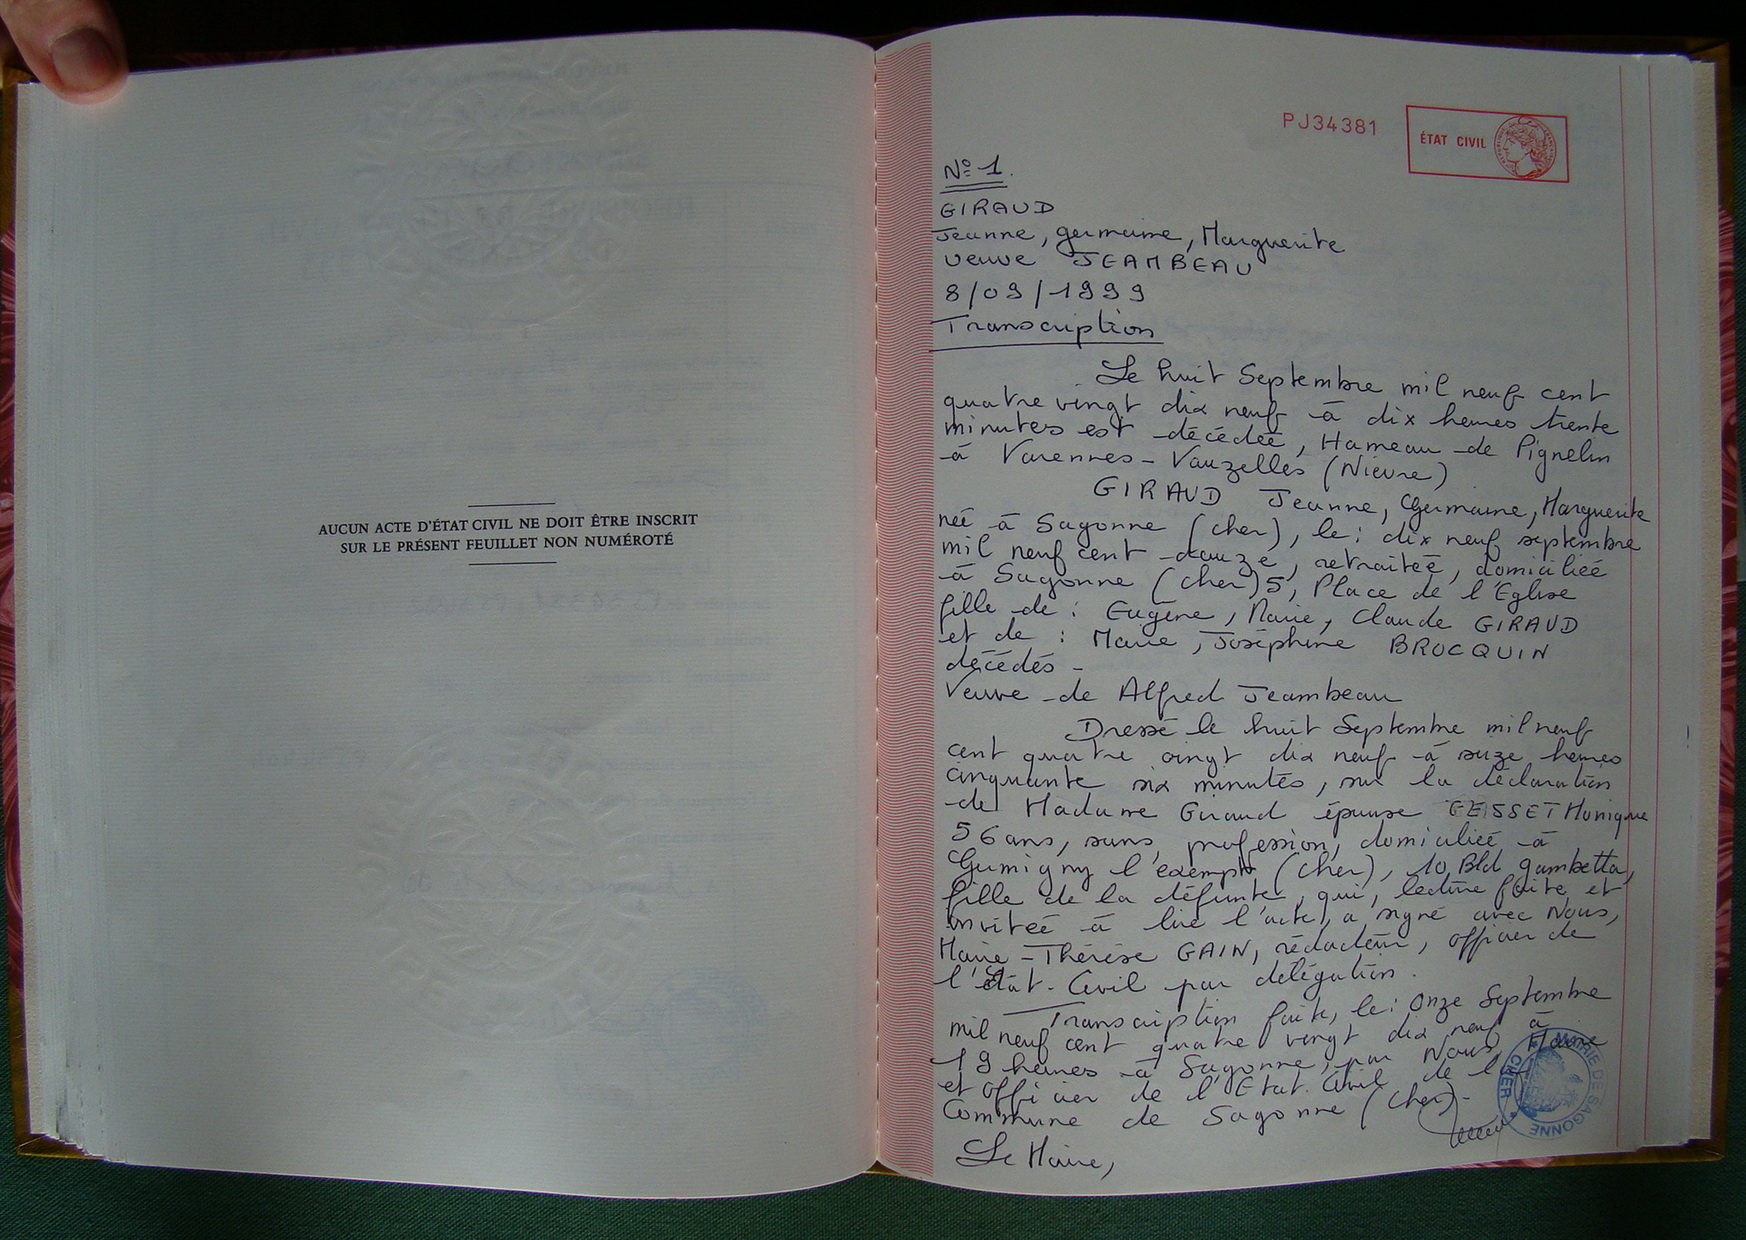 AUCUN ACTE D'ÉTAT CIVIL NE DOIT ÊTRE INSCRIT
SUR LE PRÉSENT FEUILLET NON NUMÉROTÉ
PJ34381
ÉTAT CIVIL
N° 1.
GIRAUD
Jeanne, Germaine, Marguerite
veuve JEAMBEAU
8/09/1999
Transcription
Le huit Septembre mil neuf cent
quatre vingt dix neuf à dix heures trente
minutes est décédée, Hameau de Pignelin
à Varennes-Vauzelles (Nièvre)
GIRAUD Jeanne, Germaine, Marguerite
née à Sagonne (Cher), le : dix neuf septembre
mil neuf cent douze, retraitée, domiciliée
à Sagonne (Cher) 5, Place de l'Eglise
fille de : Eugène, Marie, Claude GIRAUD
et de : Marie, Joséphine BROCQUIN
décédés -
Veuve de Alfred Jeambeau
Dressé le huit Septembre mil neuf
cent quatre vingt dix neuf à seize heures
cinquante six minutes, sur la déclaration
de Madame Giraud épouse GEISSET Monique
56 ans, sans profession, domiciliée à
l'exempt (Cher), 10, Bld Gambetta,
fille de la défunte, qui, lecture faite et
invitée à lire l'acte, a signé avec Nous,
Marie-Thérèse GAIN, rédacteur, officier de
l'État-Civil par délégation.
Transcription faite, le : onze Septembre
mil neuf cent quatre vingt dix neuf à
19 heures à Sagonne, par Nous, Maire
et officier de l'Etat.Civil de la
Commune de Sagonne (Cher)-
Le Maire,
MAIRIE DE SAGONNE
CHER